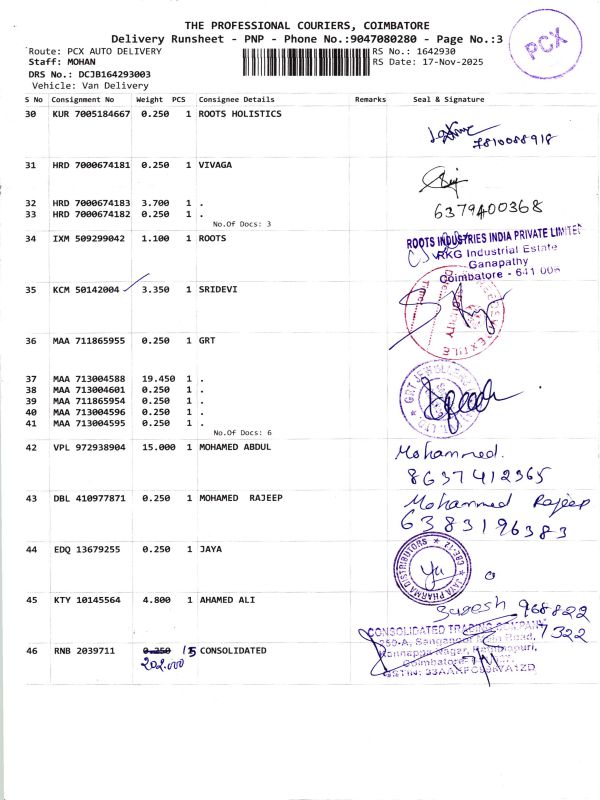 THE PROFESSIONAL COURIERS, COIMBATORE
Delivery Runsheet - PNP - Phone No.:9047080280 - Page No.:3
PCX
Route: PCX AUTO DELIVERY RS No.: 1642930
Staff: MOHAN RS Date: 17-Nov-2025
DRS No.: DCJB164293003
Vehicle: Van Delivery
S No Consignment No Weight PCS Consignee Details Remarks Seal & Signature
30 KUR 7005184667 0.250 1 ROOTS HOLISTICS
7810088918
31 HRD 7000674181 0.250 1 VIVAGA
32 HRD 7000674183 3.700 1 .
33 HRD 7000674182 0.250 1 .
6379400368
No.Of Docs: 3
34 IXM 509299042 1.100 1 ROOTS
ROOTS INDUSTRIES INDIA PRIVATE LIMITED
RKG Industrial Estate
Ganapathy
Coimbatore - 641 006
35 KCM 50142004 3.350 1 SRIDEVI
36 MAA 711865955 0.250 1 GRT
37 MAA 713004588 19.450 1 .
38 MAA 713004601 0.250 1 .
39 MAA 711865954 0.250 1 .
40 MAA 713004596 0.250 1 .
41 MAA 713004595 0.250 1 .
No.Of Docs: 6
42 VPL 972938904 15.000 1 MOHAMED ABDUL
Mohammed.
8637412365
43 DBL 410977871 0.250 1 MOHAMED RAJEEP
Mohammed Rajeep
6383196383
44 EDQ 13679255 0.250 1 JAYA
JAYA PHARMA DISTRIBUTORS
45 KTY 10145564 4.800 1 AHAMED ALI
Suresh 968822
7322
46 RNB 2039711 0.250 15 CONSOLIDATED
202.000
CONSOLIDATED TRADING COMPANY
Road,
Nagar,
Coimbatore
GSTIN: